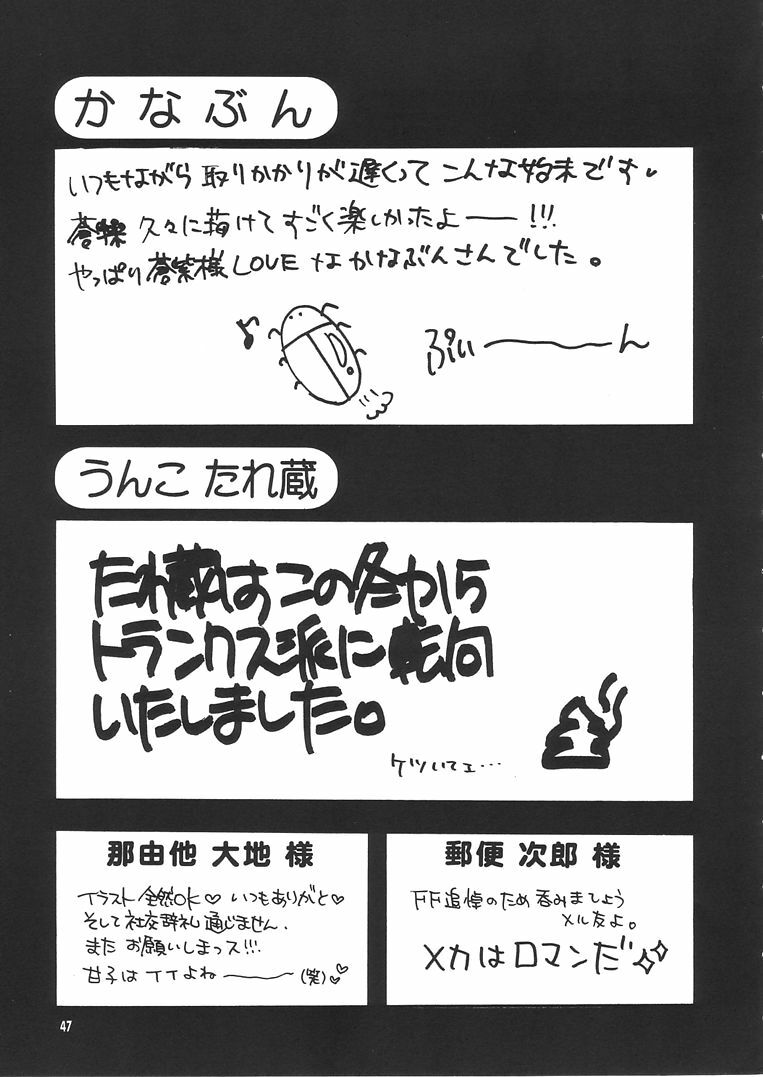 かなぶん
いつもながら 取りかかりが遅くって こんな始末です。
久々に描けて すごく楽しかったよーー!!!
やっぱり蒼紫様LOVE なかなぶんさんでした。
♪
ぷぃーーーん
うんこ たれ蔵
たれ蔵はすこの冬から
トランクス派に転向
いたしました。
ケツいてェ…
那由他 大地 様
イラスト全然OK♡ いつもありがと♡
そして社交辞礼通じません。
また お願いしまっス!!!
甘子はイイよねーーー(笑)♡
郵便 次郎 様
FF追悼のため呑みましょう
メル友よ。
メカはロマンだ
47